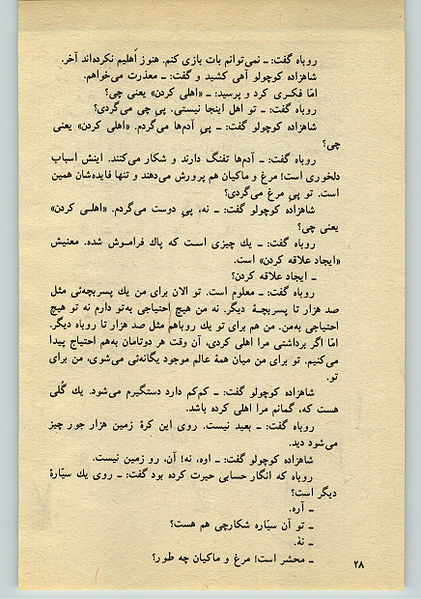 روباه گفت: ـ نمی‌توانم بات بازی کنم. هنوز اَهلیم نکرده‌اند آخر.
شاهزاده کوچولو آهی کشید و گفت: ـ معذرت می‌خواهم.
امّا فکری کرد و پرسید: ـ «اهلی کردن» یعنی چی؟
روباه گفت: ـ تو اهل اینجا نیستی. پی چی می‌گردی؟
شاهزاده کوچولو گفت: ـ پیِ آدم‌ها می‌گردم. «اهلی کردن» یعنی
چی؟
روباه گفت: ـ آدم‌ها تفنگ دارند و شکار می‌کنند. اینش اسباب
دلخوری است! مرغ و ماکیان هم پرورش می‌دهند و تنها فایده‌شان همین
است. تو پیِ مرغ می‌گردی؟
شاهزاده کوچولو گفت: ـ نه، پیِ دوست می‌گردم. «اهلی کردن»
یعنی چی؟
روباه گفت: ـ یك چیزی است که پاك فراموش شده. معنیش
«ایجاد علاقه کردن» است.
ـ ایجاد علاقه کردن؟
روباه گفت: ـ معلوم است. تو الان برای من یك پسربچه‌ئی مثل
صد هزار تا پسربچهٔ دیگر. نه من هیچ احتیاجی به‌تو دارم نه تو هیچ
احتیاجی به‌من. من هم برای تو یك روباهم مثل صد هزار تا روباه دیگر.
امّا اگر برداشتی مرا اهلی کردی، آن وقت هر دوتامان به‌هم احتیاج پیدا
می‌کنیم. تو برای من میان همهٔ عالم موجود یگانه‌ئی می‌شوی، من برای
تو.
شاهزاده کوچولو گفت: ـ کم‌کم دارد دستگیرم می‌شود. یك گُلی
هست که، گمانم مرا اهلی کرده باشد.
روباه گفت: ـ بعید نیست. روی این کرهٔ زمین هزار جور چیز
می‌شود دید.
شاهزاده کوچولو گفت: ـ اوه، نه! آن، رو زمین نیست.
روباه که انگار حسابی حیرت کرده بود گفت: ـ روی یك سیّارهٔ
دیگر است؟
ـ آره.
ـ تو آن سیّاره شکارچی هم هست؟
ـ نهْ.
ـ محشر است! مرغ و ماکیان چه طور؟
۲۸